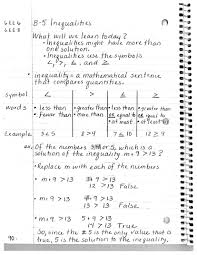 6.EE.6
6.EE.8
8-5 Inequalities
What will we learn today?
• Inequalities might have more than one solution.
• Inequalities use the symbols <, >, ≤, and ≥
• inequality = a mathematical sentence that compares quantities.
Symbol < > ≤ ≥
Words • less than • greater than • less than or equal to • greater than or equal to
• fewer than • more than • at most • at least
Example 3 < 5 8 > 4 7 ≤ 10 12 ≥ 9
ex: Of the numbers 3, 4, or 5, which is a solution of the inequality m + 9 > 13?
• Replace m with each of the numbers
• m + 9 > 13 3 + 9 > 13
12 > 13 False
• m + 9 > 13 4 + 9 > 13
13 > 13 False.
• m + 9 > 13 5 + 9 > 13
14 > 13 True
So, since the 5 is the only value that is true, 5 is the solution to the inequality.
90